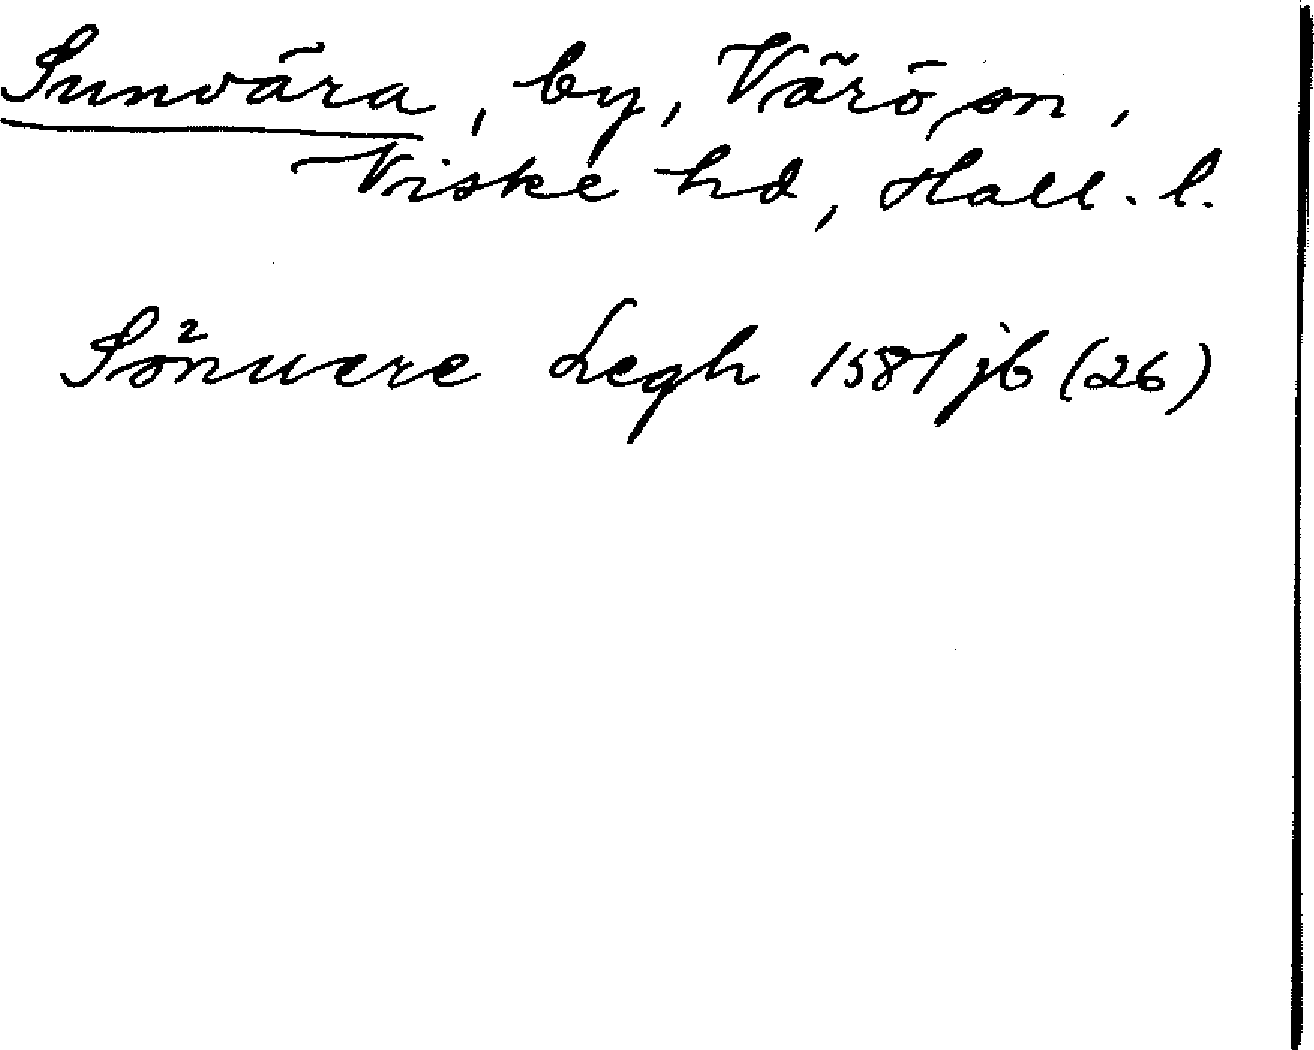 Sunvära, by, Värö sn,
Viske hd, Hall. l.
Sönuere Legh 1581 jb (26)